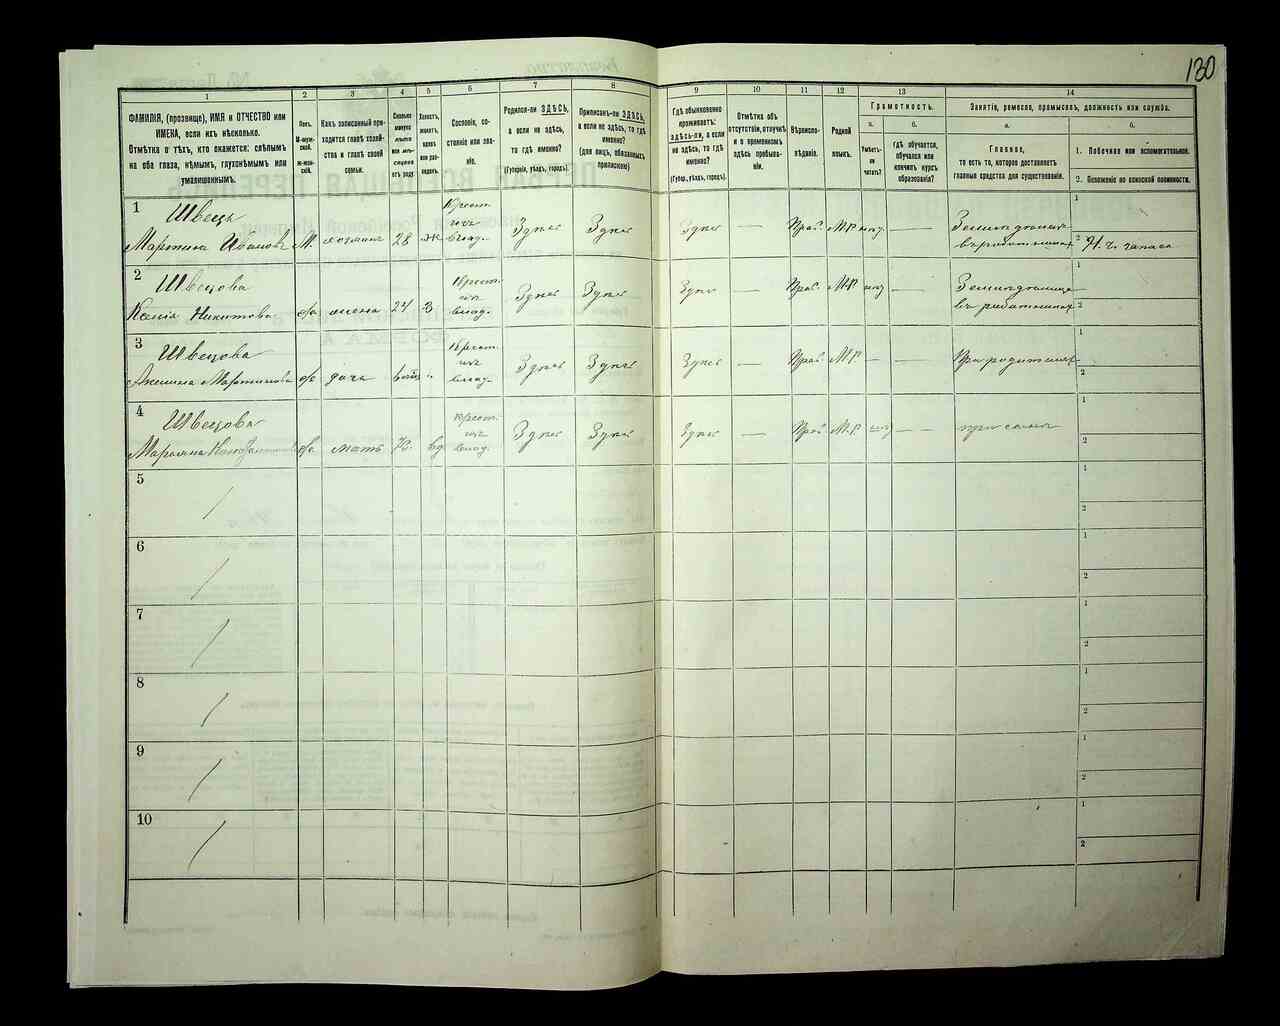 130
1
2
3
4
5
6
7
8
9
10
11
12
13
14
ФАМИЛІЯ, (прозвище), ИМЯ и ОТЧЕСТВО или
ИМЕНА, если ихъ нѣсколько.
Отмѣтка о тѣхъ, кто окажется: слѣпымъ
на оба глаза, нѣмымъ, глухонѣмымъ или
умалишеннымъ.
Полъ.
М-муж-
ской.
Ж-жен-
скій.
Какъ записанный при-
ходится главѣ хозяй-
ства и главѣ своей
семьи.
Сколько
минуло
лѣтъ
или мѣ-
сяцевъ
отъ роду.
Холостъ,
женатъ,
вдовъ
или раз-
веденъ.
Сословіе, со-
стояніе или зва-
ніе.
Родился-ли ЗДѢСЬ,
а если не здѣсь,
то гдѣ именно?
(Губернія, уѣздъ, городъ).
Приписанъ-ли ЗДѢСЬ,
а если не здѣсь, то гдѣ
именно?
(Для лицъ, обязанныхъ
припискою)
Гдѣ обыкновенно
проживаетъ:
здѣсь-ли, а если
не здѣсь, то гдѣ
именно?
(Губер., уѣздъ, городъ).
Отмѣтка объ
отсутствіи, отлучкѣ
и о временномъ
здѣсь пребыва-
ніи.
Вѣроиспо-
вѣданіе.
Родной
языкъ.
Грамотность.
а.
б.
Умѣетъ-
ли
читать?
гдѣ обучается,
обучался или
кончилъ курсъ
образованія?
Занятіе, ремесло, промыселъ, должность или служба.
а.
б.
Главное,
то есть то, которое доставляетъ
главныя средства для существованія.
1. Побочное или вспомогательное.
2. Положеніе по воинской повинности.
1
Швецъ
Мартинъ Ивановъ
М.
хозяинъ
28
ж
Крест.
изъ
влад.
Здѣсь
Здѣсь
Здѣсь
—
Прав.
М.Р
—
1
2
2
Швецова
Ксенія Никитова
жена
24
З
Крест.
изъ
влад.
Здѣсь
Здѣсь
Здѣсь
—
Прав.
М.Р
—
1
2
3
Швецова
Акилина Мартинова
дочь
Крест.
изъ
влад.
Здѣсь
Здѣсь
Здѣсь
—
Прав.
М.Р
—
—
При родителяхъ
1
2
4
Швецова
Маріяна
мать
вд
Крест.
изъ
влад.
Здѣсь
Здѣсь
Здѣсь
—
Прав
М.Р
—
при сынѣ
1
2
5
1
2
6
1
2
7
1
2
8
1
2
9
1
2
10
1
2